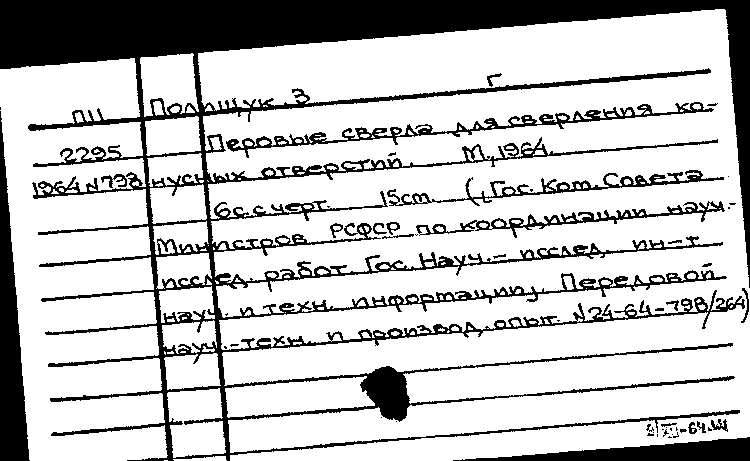 ПII Полищук. З Г
2295 Перовые сверла для сверления ко-
1964 N798 нусных отверстий. М., 1964.
6с. с черт. 15cm. (Гос. Ком. Совета
Министров РСФСР по координации науч.-
исслед. работ. Гос. Науч.- исслед. ин-т
науч. и техн. информации). Передовой
науч.-техн. и производ. опыт. N24-64-798/264)
XII-64